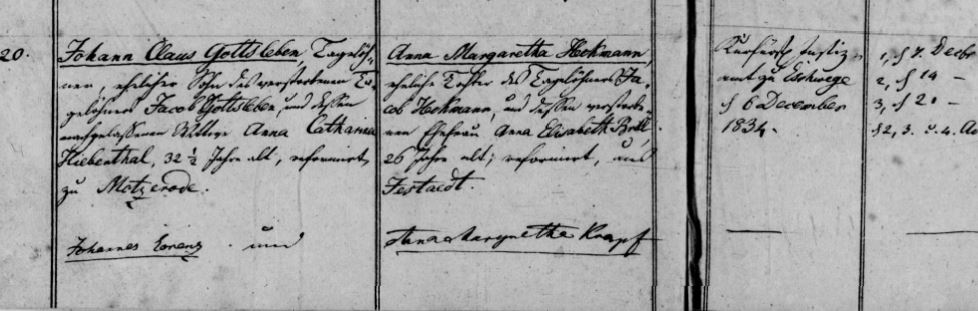 20.
Johann Claus Gottsleben, Tagelöh-
ner, ehelicher Sohn des verstorbenen Ta-
gelöhners Jacob Gottsleben, und dessen
nachgelassenen Wittwe Anna Catharina
Hiebenthal, 32 1/2 Jahre alt, reformirt,
zu Motzerode.
Johannes Lorenz und
Anna Margaretha Heckmann,
eheliche Tochter des Tagelöhners Ja-
cob Heckmann, und dessen verstorbe-
nen Ehefrau Anna Elisabeth Brill,
26 Jahre alt, reformirt, aus
Jestaedt.
Anna Margretha Knapf
Kurfürstl. Justiz-
amt zu Eschwege
d 6 December
1834.
1, d 7. Decbr
2, d 14 —
3, d 21 —
§2, 3. u. 4.